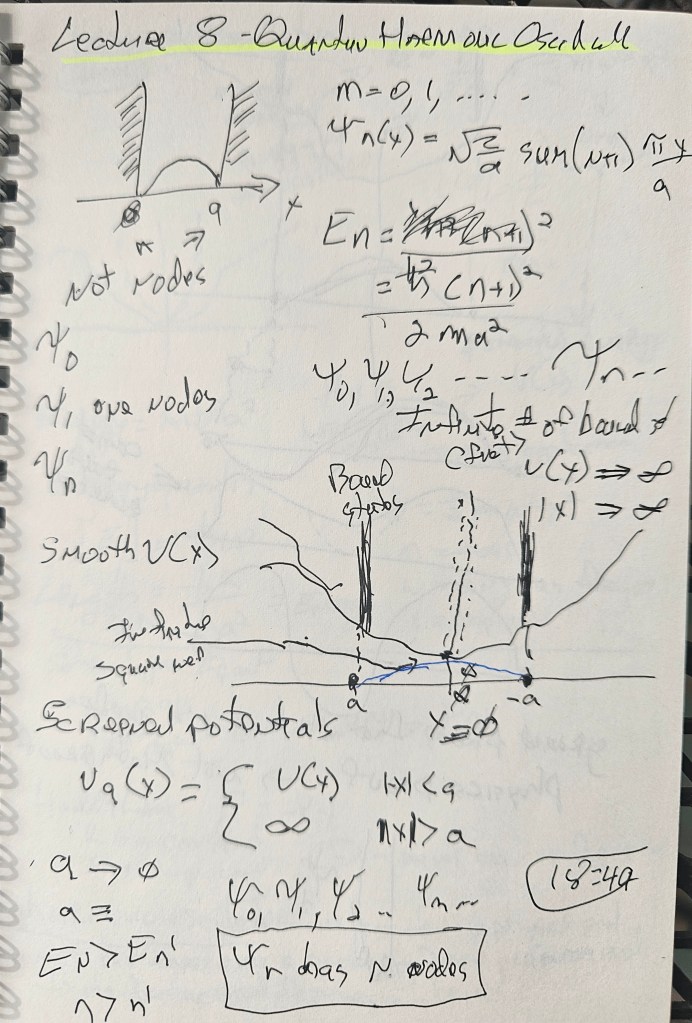 Lecture 8 - Quantum Harmonic Oscill
m = 0, 1, .....
Ψn(x) = √2/a sum(n+1) πx/a
x
a
En = (n+1)²
= ħ² (n+1)²
2 ma²
Not nodes
Ψ0
Ψ1 one nodes
Ψn
Ψ0, Ψ1, Ψ2 ----- Ψn--
Infinite # of bound
V(x) ⇒ ∞
|x| ⇒ ∞
Bound
states
Smooth V(x)
Infinite
square well
a
-a
x = 0
Screened potentials
Va(x) = { V(x) |x| < a
∞ |x| > a
a → 0
a ≡
Ψ0, Ψ1, Ψ2 .. Ψn...
18=4a
En > En'
n > n'
Ψn has n. nodes